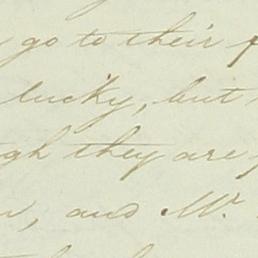 go to their
lucky, but
they are
, and Mr.